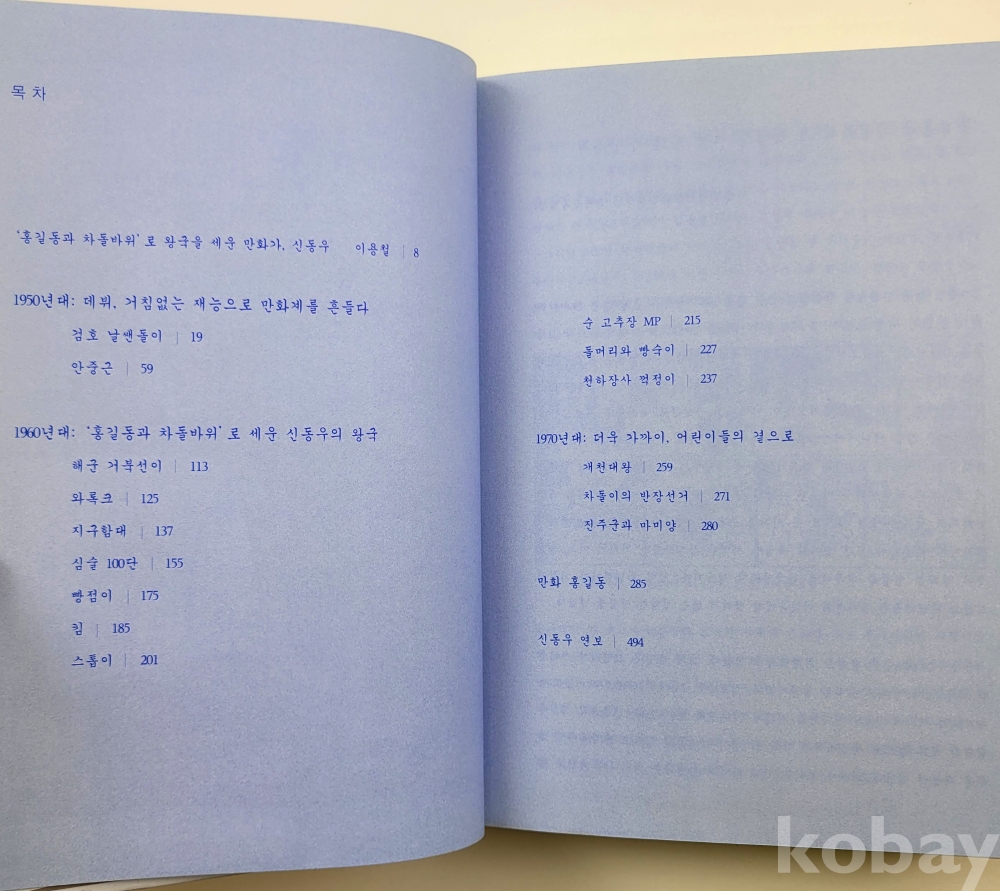 목차
'홍길동과 차돌바위'로 왕국을 세운 만화가, 신동우 이용철 | 8
1950년대: 데뷔, 거침없는 재능으로 만화계를 흔들다
검호 날쌘돌이 | 19
안중근 | 59
1960년대: '홍길동과 차돌바위'로 세운 신동우의 왕국
해군 거북선이 | 113
와룩크 | 125
지구함대 | 137
심술 100단 | 155
빵점이 | 175
킴 | 185
스톱이 | 201
순 고추장 MP | 215
돌머리와 빵숙이 | 227
천하장사 꺽정이 | 237
1970년대: 더욱 가까이, 어린이들의 곁으로
개천대왕 | 259
차돌이의 반장선거 | 271
진주군과 마미양 | 280
만화 홍길동 | 285
신동우 연보 | 494
kobay